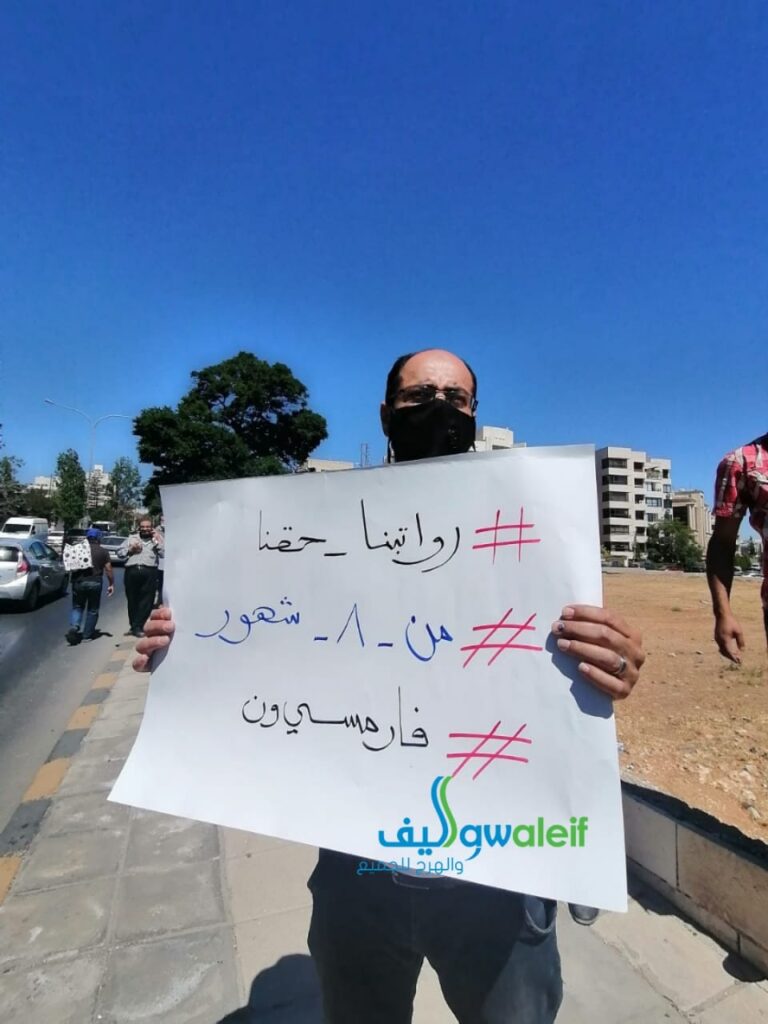 #رواتبنا_حقنا
#من_٨_شهور
#فارمسي ون
سواليفwaleif
والفرح للجميع